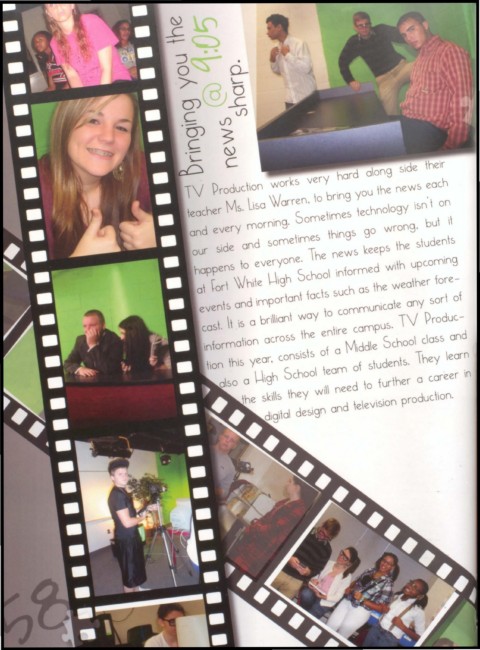 Bringing you the
news @ 9:05
sharp.
TV Production works very hard along side their
teacher Ms. Lisa Warren, to bring you the news each
and every morning. Sometimes technology isn't on
our side and sometimes things go wrong, but it
happens to everyone. The news keeps the students
at Fort White High School informed with upcoming
events and important facts such as the weather fore-
cast. It is a brilliant way to communicate any sort of
information across the entire campus. TV Produc-
tion this year, consists of a Middle School class and
also a High School team of students. They learn
the skills they will need to further a career in
digital design and television production.
58